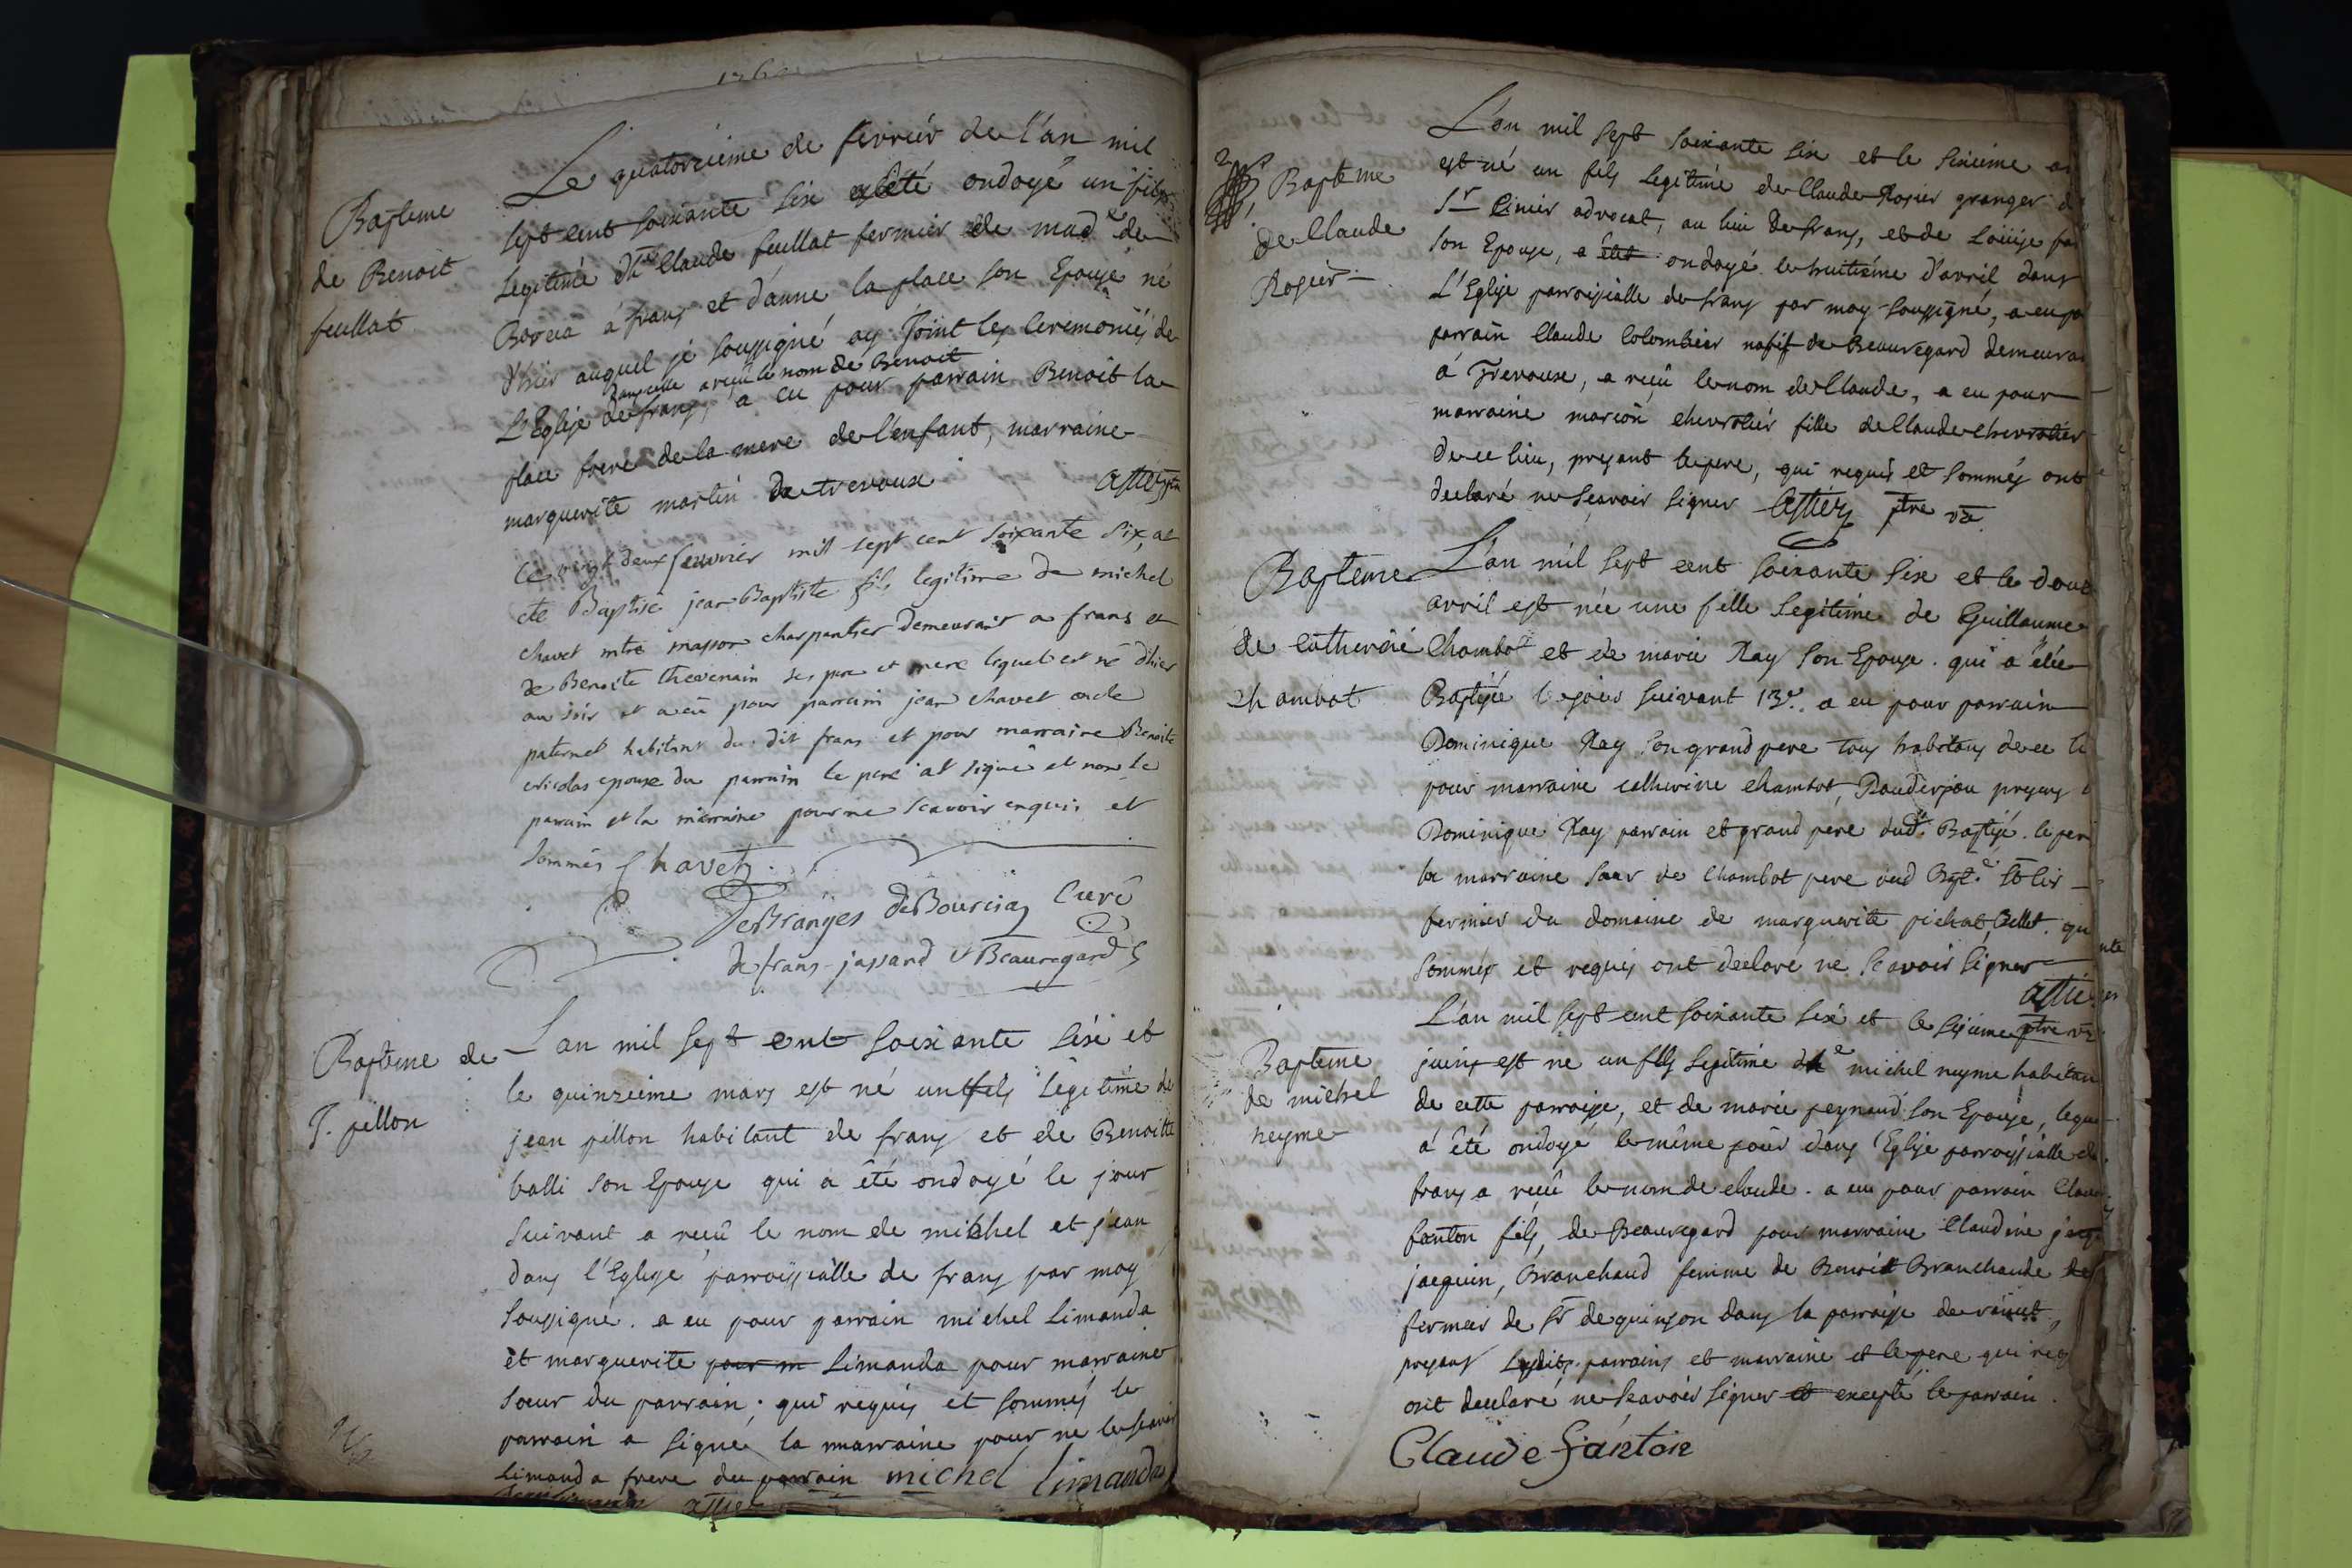 Bapteme
de Benoit
feuillat
Le quatorzieme de fevrier de l'an mil
sept cent soixante six a été ondoyé un fils
Legitime de Claude feuillat fermier de mad.e de
a frans et d'anne la place son Epouse né
d'hier auquel je soussigné ay joint les ceremonies de
a reçû le nom de Benoit
L'Eglise de frans, a eu pour parrain Benoit la
place frere de la mere de l'enfant, marraine
marguerite martin de trevoux
Le vingt deux feuvrier mil sept cent soixante six, at
eté Baptisé jean Baptiste fils legitime de michel
chavet mtre masson charpantier demeurant a frans et
de Benoite thevenain ses pere et mere lequel est né d'hier
au soir et a eu pour parrain jean chavet oncle
paternel habitant du dit frans et pour marraine Benoite
nicolas epouse du parrain le pere at signé et non le
parrain et la marraine pour ne scavoir enquis et
sommés Chavet
DesBranges deBourcia Curé
de frans jassand et Beauregard
Bapteme de
J. pillon
L'an mil sept cent soixante six et
le quinzieme mars est né un fils Legitime de
jean pillon habitant de frans et de Benoitte
balli son Epouse qui a été ondoyé le jour
suivant a reçû le nom de michel et jean
dans l'Eglise parroissialle de frans par moy
soussigné. a eu pour parrain michel Limanda
et marguerite pour m Limanda pour marraine
sœur du parrain; qui requis et sommés le
parrain a signé la marraine pour ne le scavoir
Limanda frere du parrain michel Limanda
Bapteme
de Claude
Rosier
L'an mil sept soixante six et le sixieme
est né un fils Legitime de Claude Rosier granger d
Sr Cinier advocat, au lieu de frans, et de Loüise
son Epouse, a été ondoyé le huitiéme d'avril dans
L'Eglise parroissialle de frans par moy soussigné, a eu po
parrain Claude Colombier natif de Beauregard demeuran
à Trevoux, a reçû le nom de Claude, a eu pour
marraine marion chevrotier fille de Claude chevrotier
de ce lieu, present le pere, qui requis et sommés ont
declaré ne scavoir signer Astier ptre vre
Bapteme
de Catherine
Chambot
L'an mil sept cent soixante six et le douz
avril est née une fille Legitime de Guillaume
Chambot et de marie Ray son Epouse. qui a étée
Baptisée le jour suivant 13e. a eu pour parrain
Dominique Ray son grand pere tous habitans de ce li
pour marraine catherine chambot, presens
Dominique Ray parrain et grand pere dud. Baptisé. le pere
la marraine sœur de Chambot pere
fermier du domaine de marguerite pichat, qu
sommés et requis ont declaré ne scavoir signer
Astier
ptre vre
Bapteme
de michel
neyme
L'an mil sept cent soixante six et le sixieme
juin est né un fils Legitime de michel neyme habitan
de cette parroisse, et de marie peynaud son Epouse, leque
a été ondoyé le même jour dans l'Eglise parroissialle de
frans a reçû le nom de claude. a eu pour parrain Claude
fanton fils, de Beauregard pour marraine Claudine
jacquin, Branchaud femme de Benoit Branchaude de
fermier de Sr dequinson dans la parroisse de
presens Lesdits parrains et marraine et le pere qui req
ont declaré ne scavoir signer et excepté le parrain.
Claude Fanton